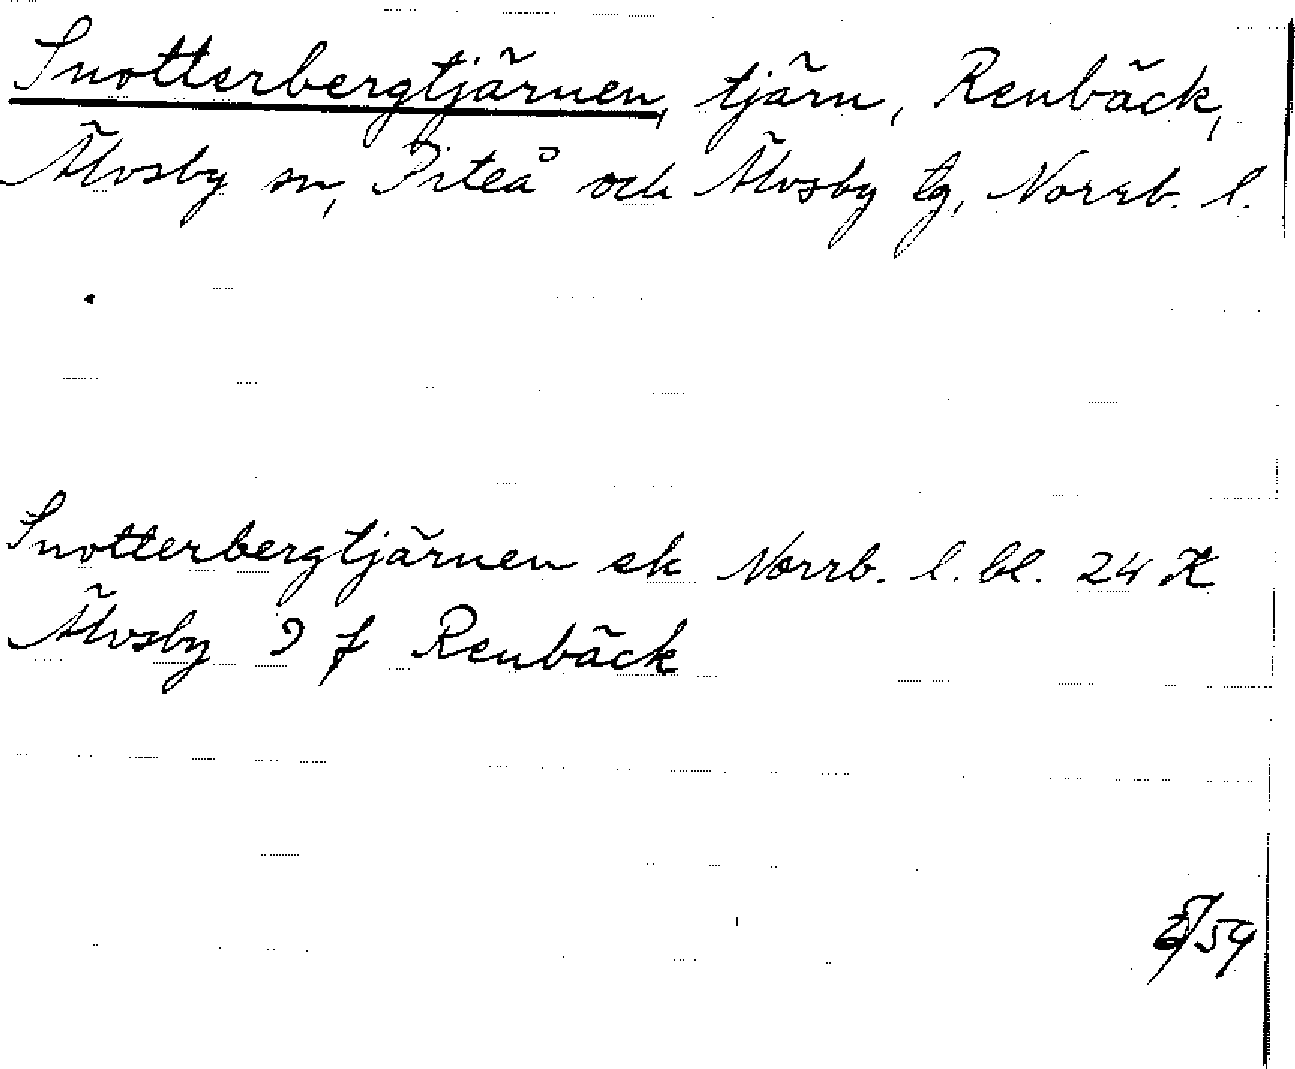 Snotterbergtjärnen, tjärn, Renbäck,
Älvsby sn, Piteå och Älvsby tg, Norrb. l.
Snotterbergtjärnen ek Norrb. l. bl. 24 H
Älvsby 9 f Renbäck